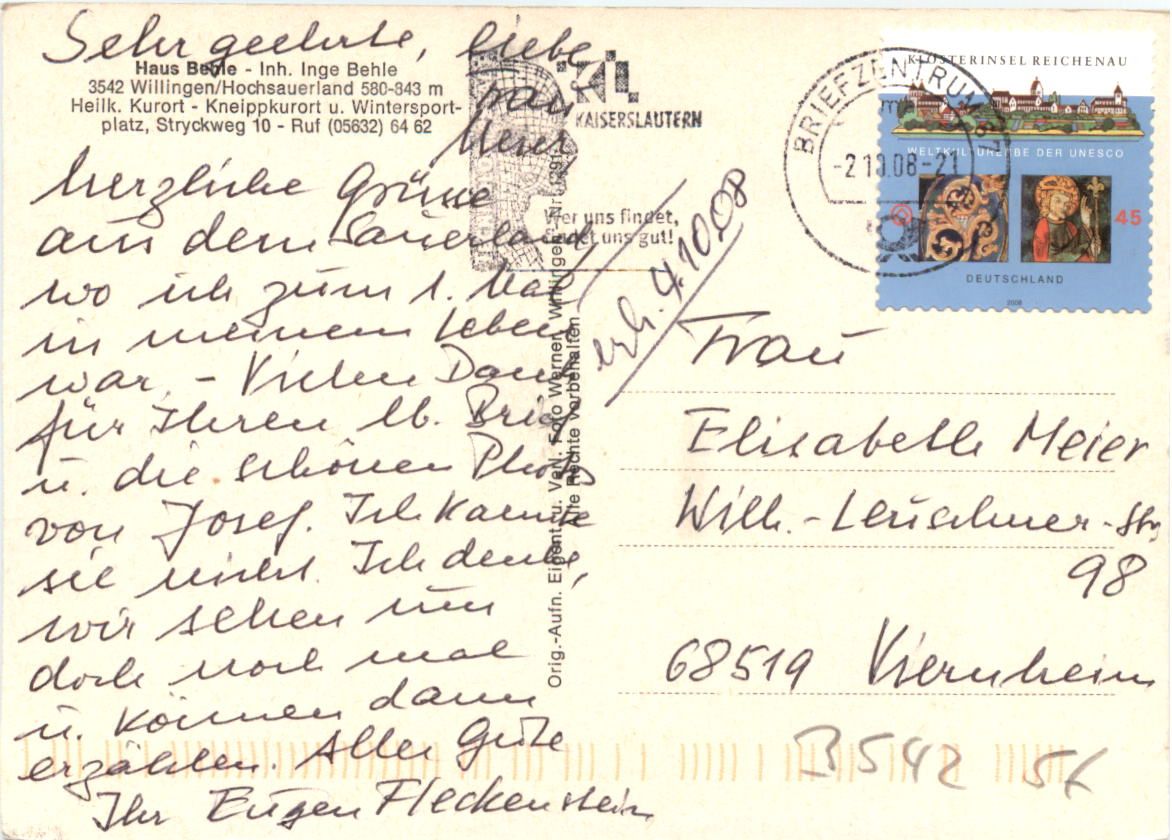 Sehr geehrte, liebe
Frau
Meier
Haus Behle - Inh. Inge Behle
3542 Willingen/Hochsauerland 580-843 m
Heilk. Kurort - Kneippkurort u. Wintersport-
platz, Stryckweg 10 - Ruf (05632) 64 62
herzliche Grüße
aus dem Sauerland
wo ich zum 1. Mal
in meinem Leben
war. - Vielen Dank
für Ihren lb. Brief
u. die schönen Photos
von Josef. Ich kannte
sie nicht. Ich denke,
wir sehen uns
doch noch mal
u. können dann
erzählen. Alles Gute
Ihr Eugen Fleckenstein
KAISERSLAUTERN
Wer uns findet,
findet uns gut!
BRIEFZENTRUM 67
-2.10.08-21
KLOSTERINSEL REICHENAU
WELTKULTURERBE DER UNESCO
45
DEUTSCHLAND
2008
erh. 4.10.08
Orig.-Aufn. Eigent. u. Verl. Foto Werner, Willingen
Alle Rechte vorbehalten
Frau
Elisabeth Meier
Wilh.-Leuschner-Str
98
68519 Viernheim
3542 56